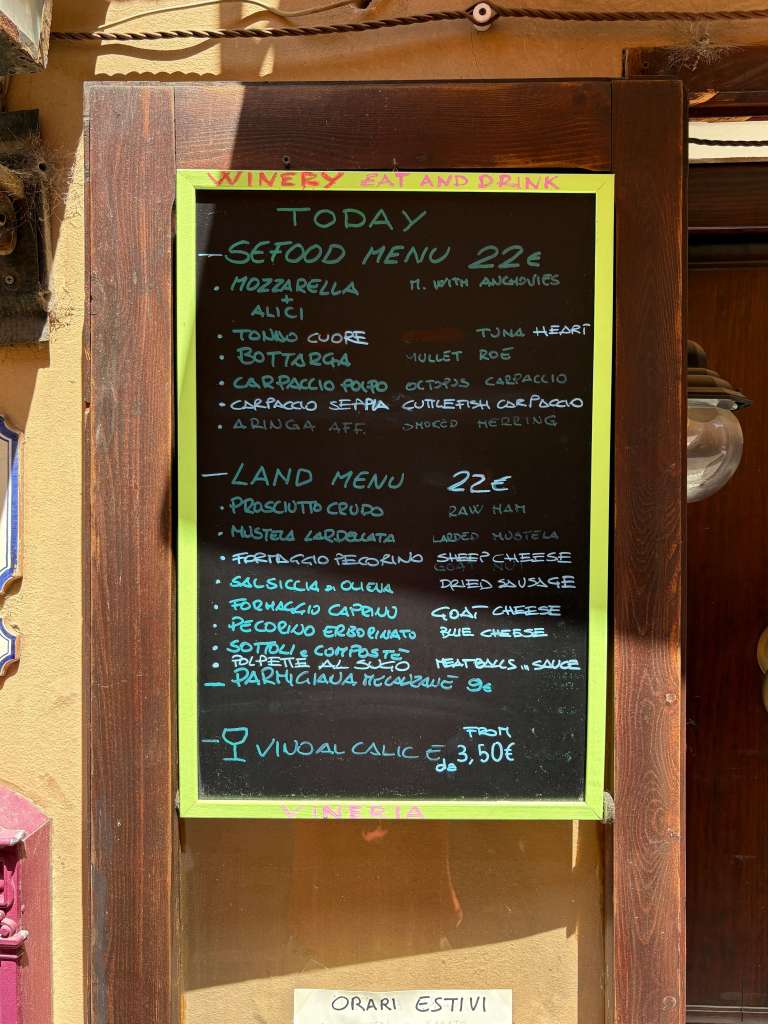 WINERY EAT AND DRINK
TODAY
- SEFOOD MENU 22€
• MOZZARELLA M. WITH ANCHOVIES
+
ALICI
• TONNO CUORE TUNA HEART
• BOTTARGA MULLET ROE
• CARPACCIO POLPO OCTOPUS CARPACCIO
• CARPACCIO SEPPIA CUTTLEFISH CARPACCIO
• ARINGA AFF. SMOKED HERRING
- LAND MENU 22€
• PROSCIUTTO CRUDO RAW HAM
• MUSTELA LARDELLATA LARDED MUSTELA
• FORMAGGIO PECORINO SHEEP CHEESE
• SALSICCIA di OLIENA DRIED SAUSAGE
• FORMAGGIO CAPRINO GOAT CHEESE
• PECORINO ERBORINATO BLUE CHEESE
• SOTTOLI e COMPOSTE
• POLPETTE AL SUGO MEATBALLS in SAUCE
- PARMIGIANA MELANZANE 9€
FROM
- VINO AL CALICE da 3,50€
VINERIA
ORARI ESTIVI